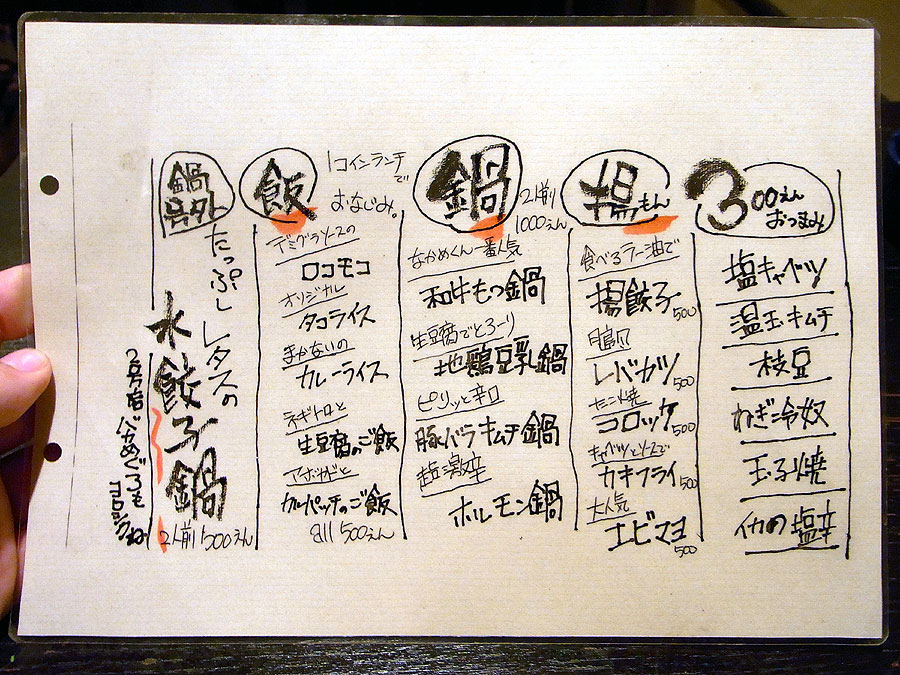 300えん
おつまみ
塩キャベツ
温玉キムチ
枝豆
ねぎ冷奴
玉子焼
イカの塩辛
揚もん
食べるラー油で
揚餃子 500
レバカツ 500
たこ焼
コロッケ 500
キャベツとソースで
カキフライ 500
大人気
エビマヨ 500
鍋
2人前
1000えん
なかめくん一番人気
和牛もつ鍋
生豆腐でとろーり
地鶏豆乳鍋
ピリッと辛口
豚バラキムチ鍋
超激辛
ホルモン鍋
飯
1コインランチ
で
おなじみ。
デミグラソースの
ロコモコ
オリジナル
タコライス
まかないの
カレーライス
ネギトロと
生豆腐のご飯
アボガドと
カルパッチョのご飯
all 500えん
鍋
号外
たっぷし レタスの
水餃子鍋
2人前 1500えん
2号店